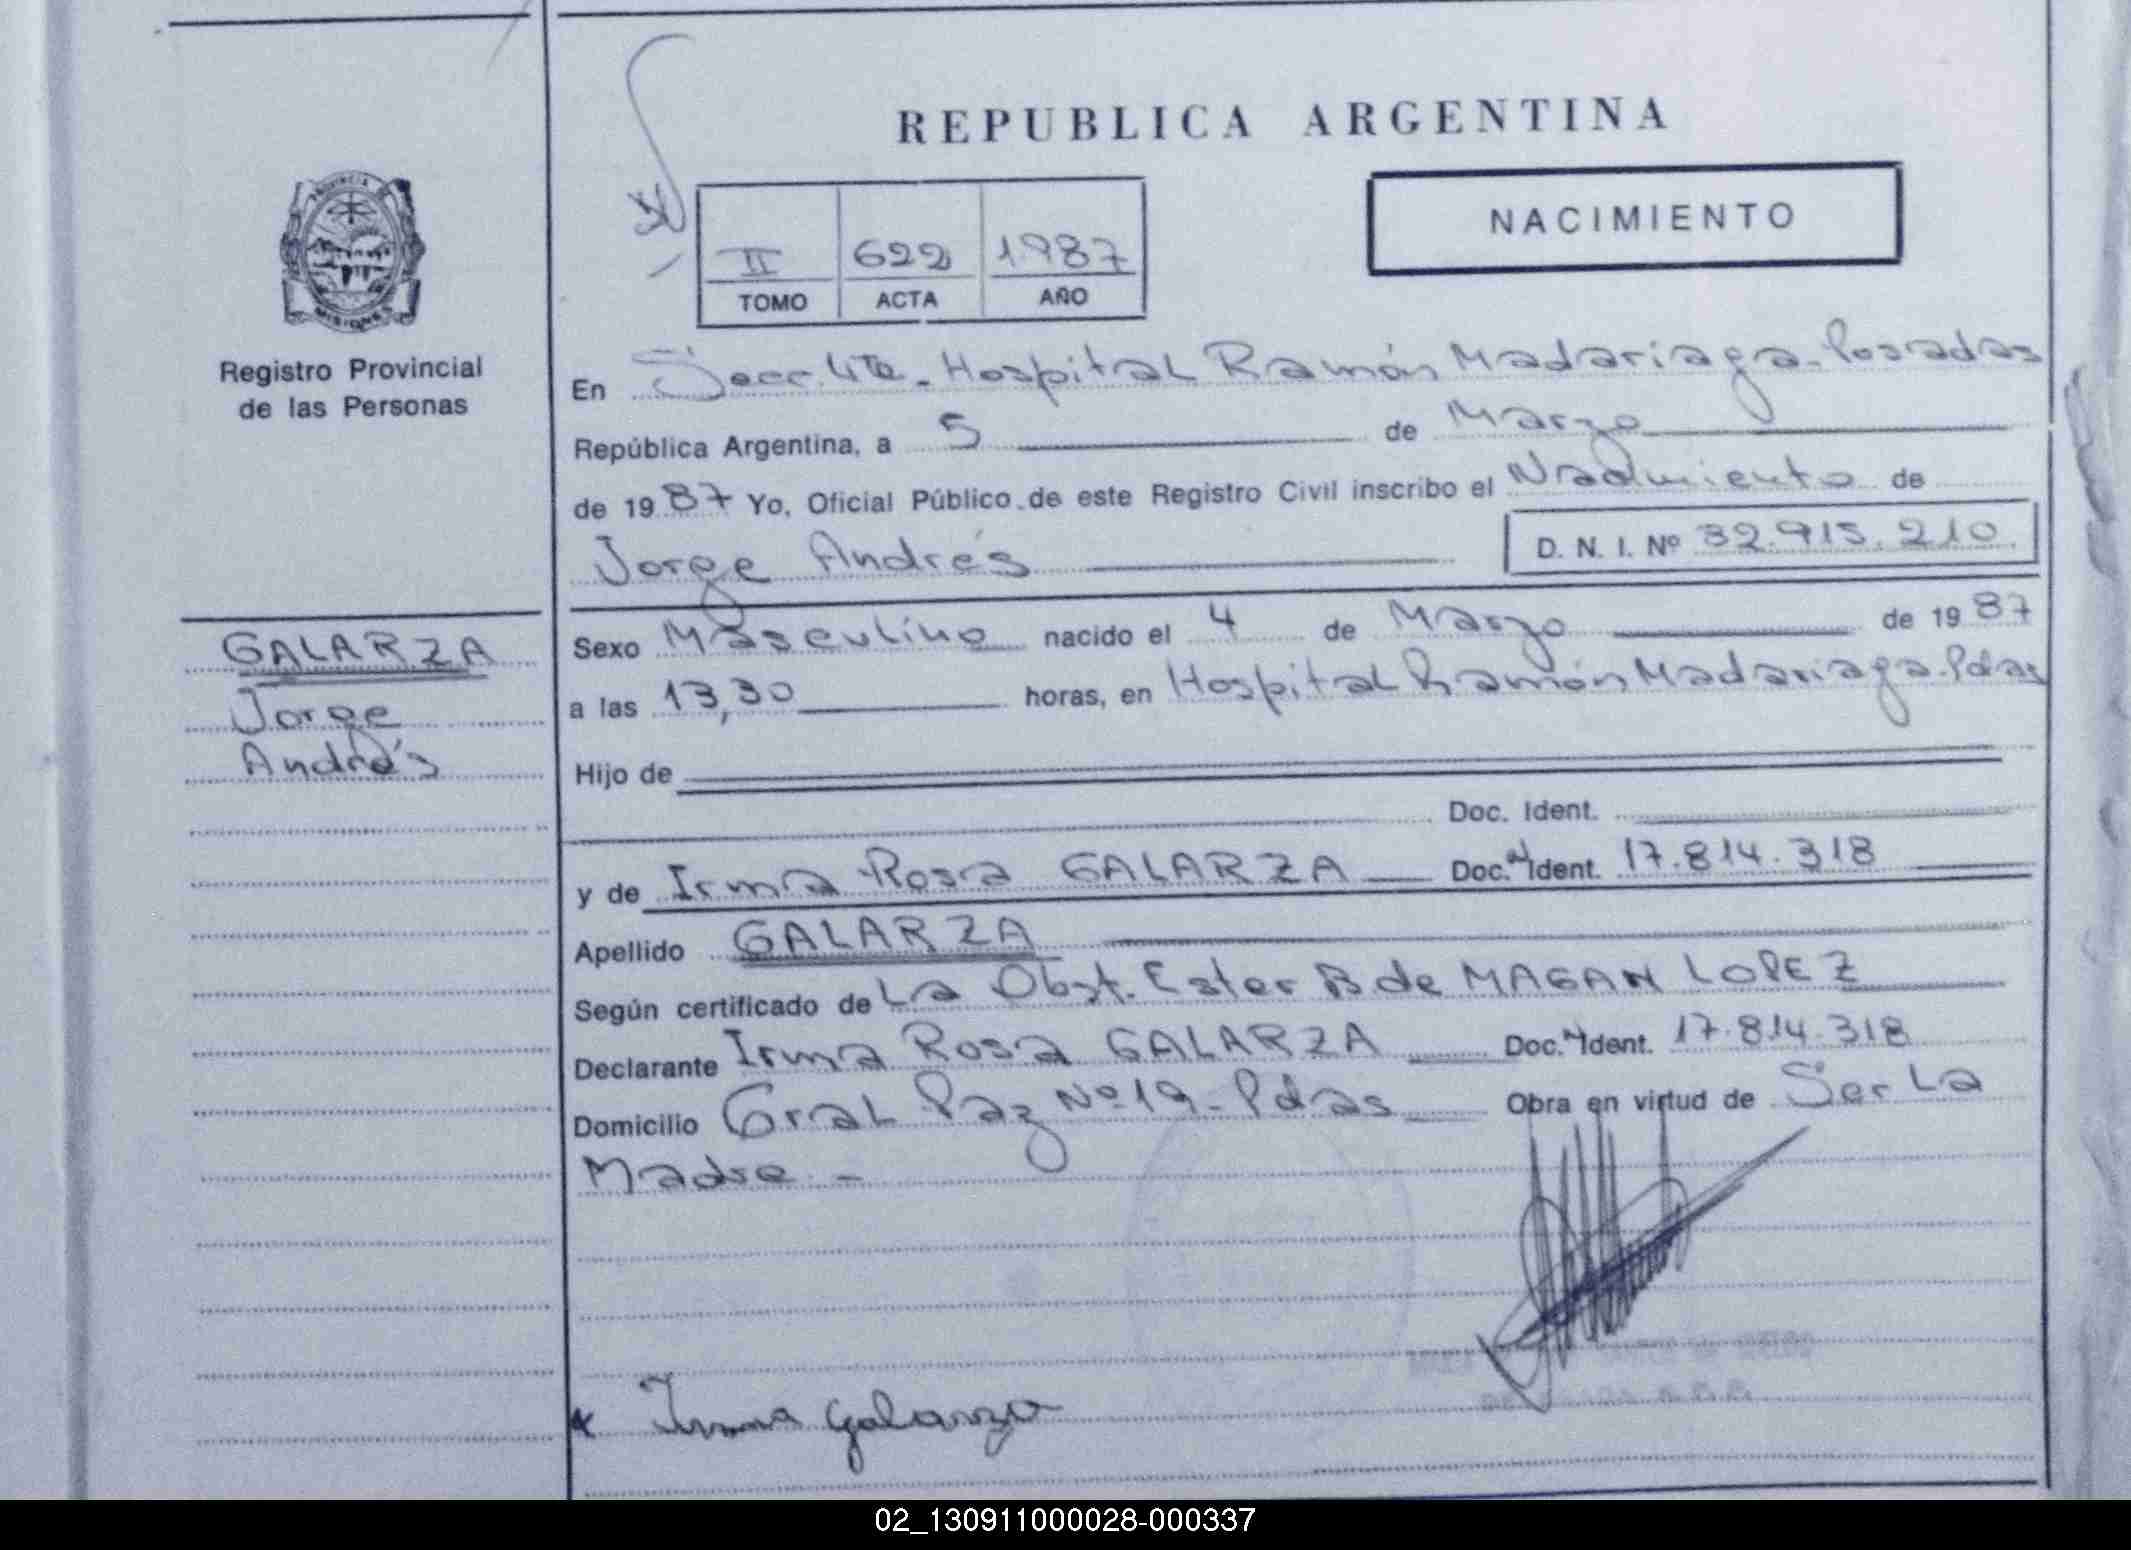 REPUBLICA ARGENTINA
NACIMIENTO
II 622 1987
TOMO ACTA AÑO
PROVINCIA DE
MISIONES
Registro Provincial
de las Personas
En Secc. 4ta. Hospital Ramón Madariaga - Posadas
República Argentina, a 5 de Marzo
de 1987 Yo, Oficial Público de este Registro Civil inscribo el Nacimiento de
Jorge Andrés D. N. I. Nº 32.915.210
GALARZA
Jorge
Andrés
Sexo Masculino nacido el 4 de Marzo de 1987
a las 13,30 horas, en Hospital Ramón Madariaga - Pdas
Hijo de
Doc. Ident.
y de Irma Rosa GALARZA Doc. Ident. 17.814.318
Apellido GALARZA
Según certificado de La Obst. Ester B de MAGAN LOPEZ
Declarante Irma Rosa GALARZA Doc. Ident. 17.814.318
Domicilio Gral Paz Nº 19 - Pdas Obra en virtud de Ser La
Madre -
Irma Galarza
02_130911000028-000337